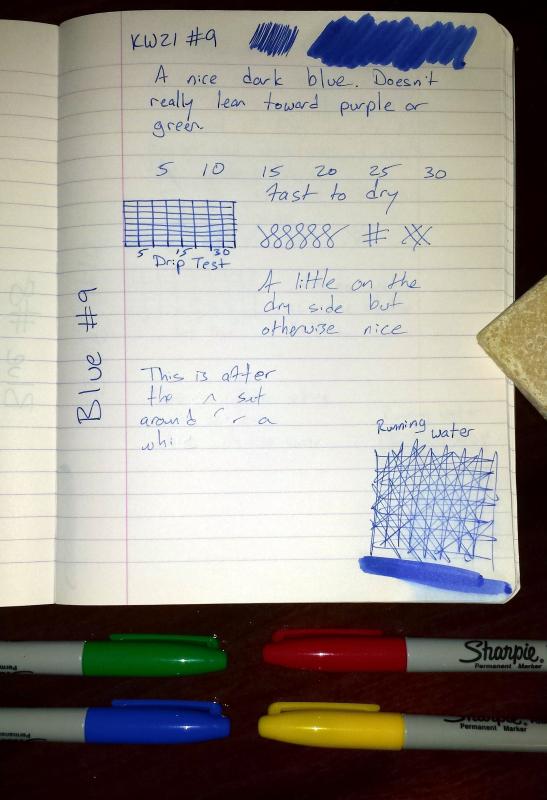 KWZI #9
A nice dark blue. Doesn't
really lean toward purple or
green.
5 10 15 20 25 30
Fast to dry
5 15 30
Drip Test
A little on the
dry side but
otherwise nice
Blue #9
This is after
the sat
around a
whi
Running
water
Sharpie.
Permanent Marker
Sharpie
Permanent Marker